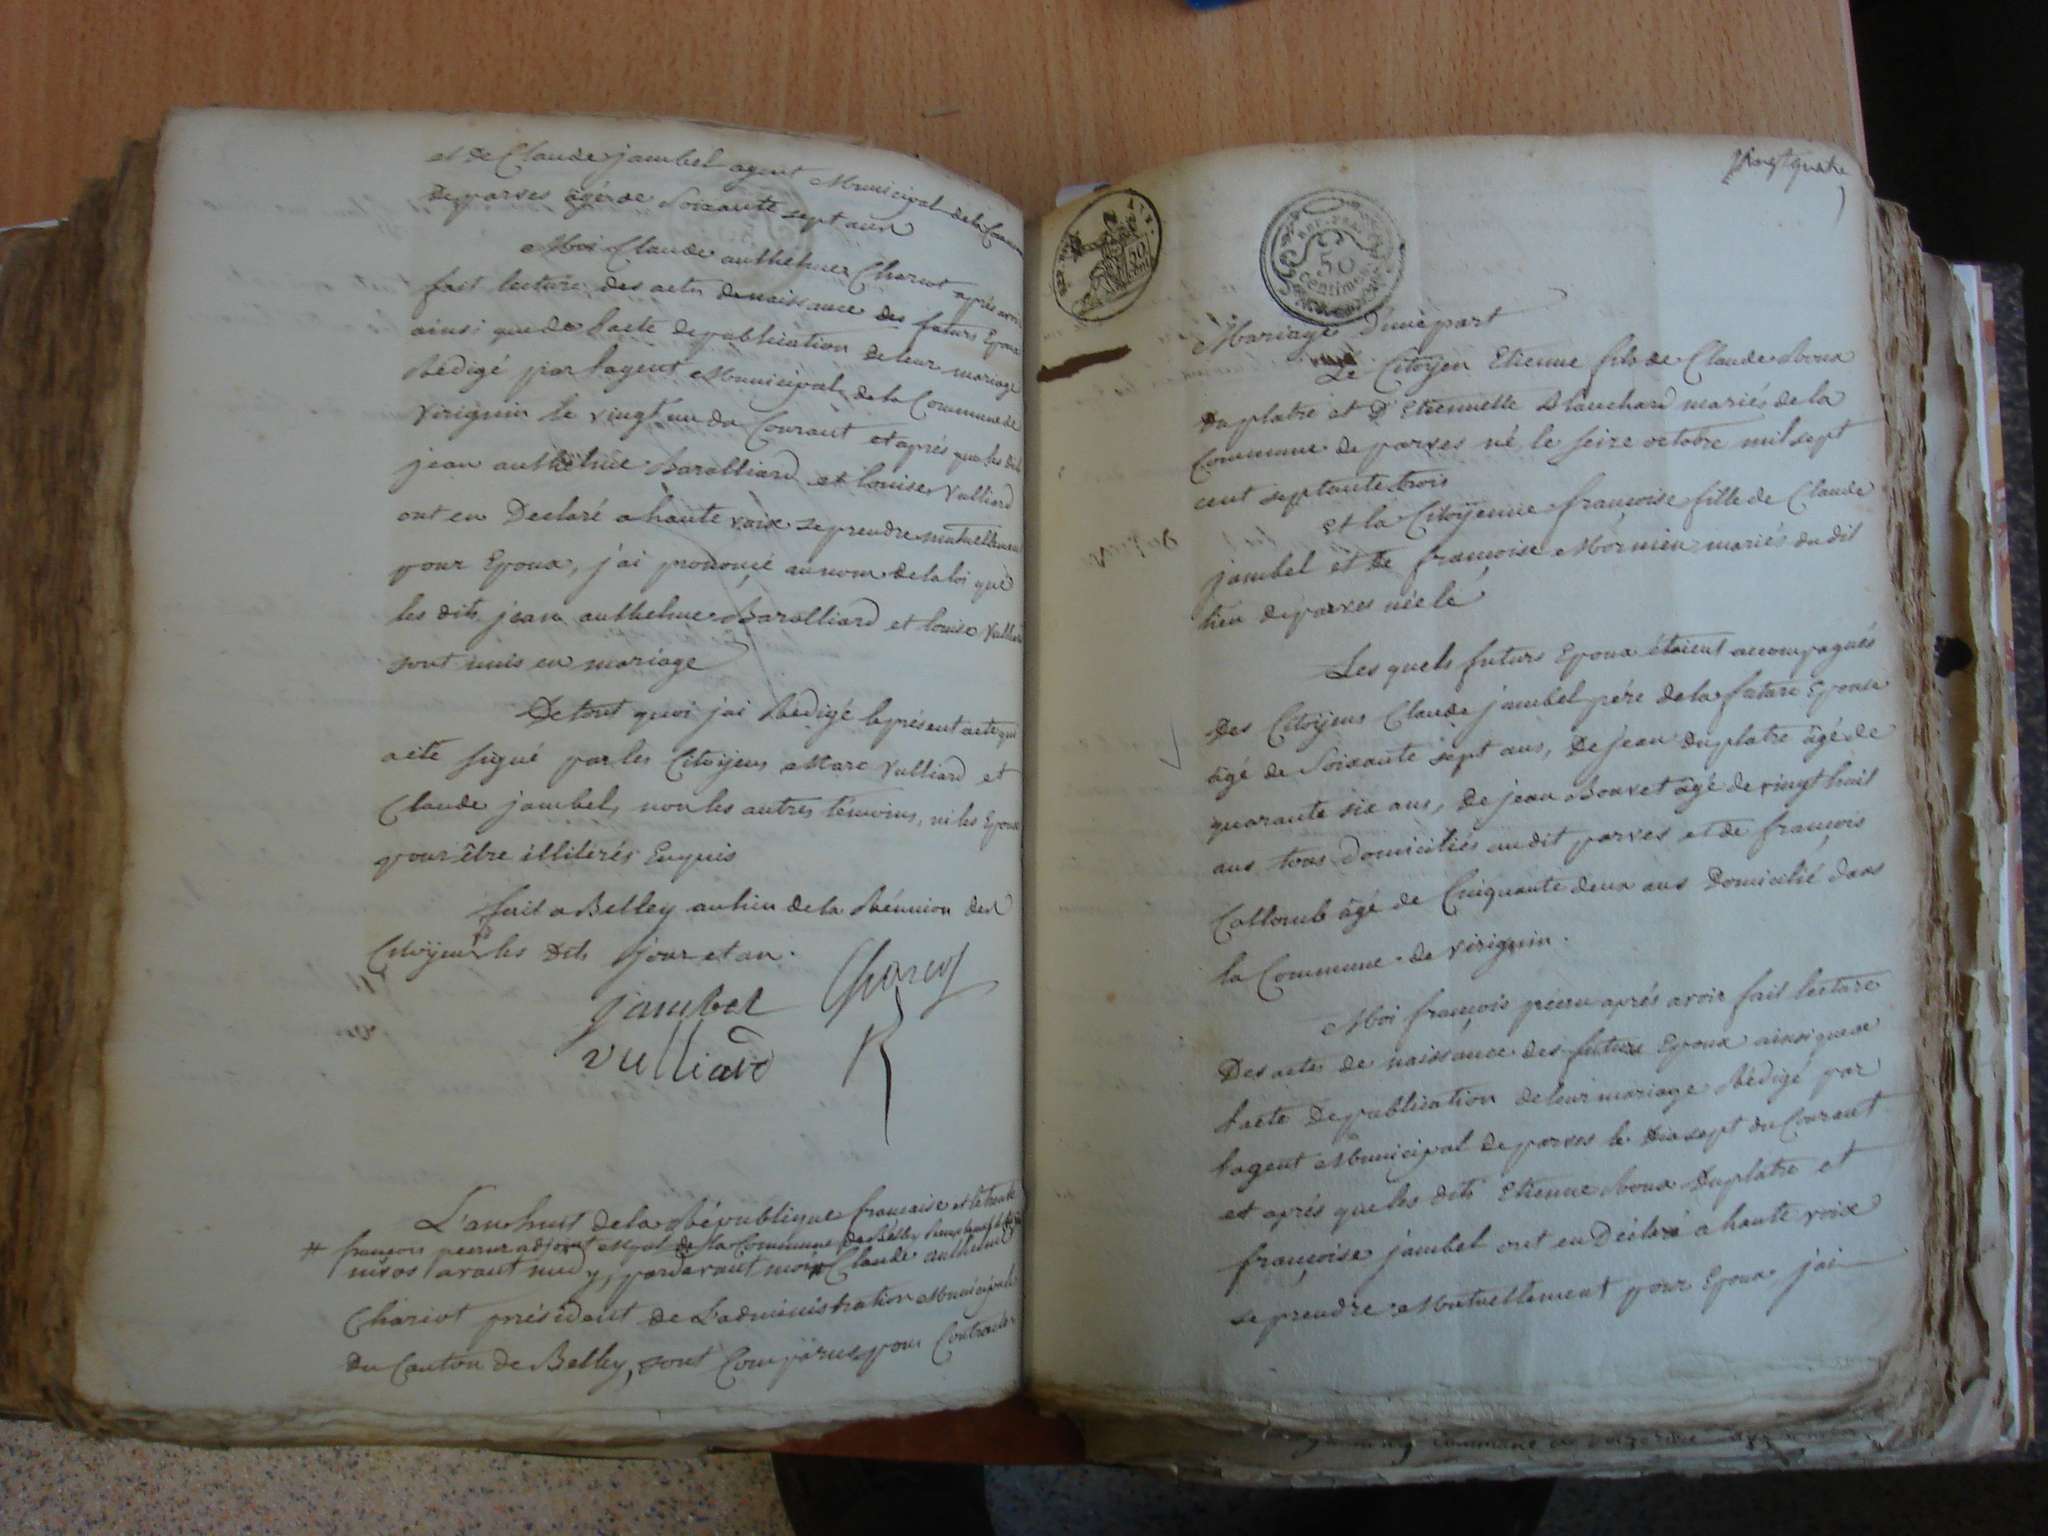 et de Claude jambel agent Municipal de la Commune
de parves âgé de Soixante sept ans
Moi Claude anthelme Chariot après avoir
fait lecture des actes de naissance des futurs Epoux
ainsi que de l'acte de publication de leur mariage
Rédigé par l'agent Municipal de la Commune de
Virignin le vingt un du Courant et après que les dits
jean anthelme Baralliard et louise Vulliard
ont eu Declaré a haute voix se prendre mutuellement
pour Epoux, j'ai prononcé au nom de la loi que
les dits jean anthelme Baralliard et louise Vulliard
sont unis en mariage
De tout quoi j'ai Rédigé le présent acte qui
a été signé par les Citoyens Marc Vulliard et
Claude jambel, non les autres témoins, ni les Epoux
pour être illitérés Enquis
fait a Belley au lieu de la Réunion des
Citoyens les dits jour et an.
jambel Chariot
vulliard
L'an huit de la République francaise et le trente
# françois adjoint de la Commune de Belley
nivos avant midy, pardevant moi # Claude anthelme
Chariot président de L'administration Municipale
du Canton de Belley, sont Comparus pour Contracter
vingt quatre
REP. FRA.
50
Centimes
50
Mariage d'une part
Le Citoyen Etienne fils de Claude Roux
Duplatre et d'Etiennette Blanchard mariés de la
Commune de parves né le seize octobre mil sept
cent septante trois
et la Citoyenne françoise fille de Claude
jambel et de françoise Mornieu mariés du dit
lieu de parves née le
Les quels futurs Epoux étaient accompagnés
des Citoyens Claude jambel père de la future Epouse
âgé de Soixante sept ans, de jean duplatre âgé de
quarante six ans, de jean Bouvet âgé de vingt huit
ans tous domiciliés audit parves et de françois
Collomb âgé de Cinquante deux ans Domicilié dans
la Commune de Virignin.
Moi françois après avoir fait lecture
Des actes de naissance des futurs Epoux ainsi que de
l'acte de publication de leur mariage Rédigé par
l'agent Municipal de parves le dix sept du Courant
et après que les dits Etienne Roux Duplatre et
françoise jambel ont eu Déclaré a haute voix
se prendre Mutuellement pour Epoux j'ai